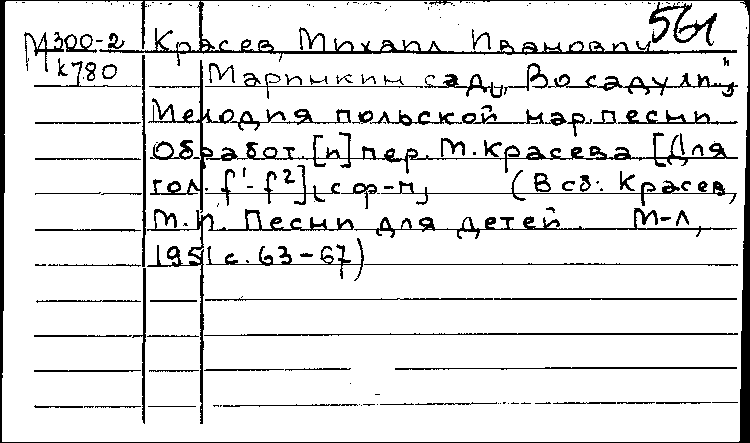 56л
М300-2 Красев, Михаил Иванович
К780 Маринкин сад. "Во саду ли..."
Мелодия польской нар. песни.
Обработ. [и] пер. М. Красева [Для
гол. f¹-f²] с ф-п. (В сб.: Красев,
М.И. Песни для детей. М-Л,
1951 с. 63-67)